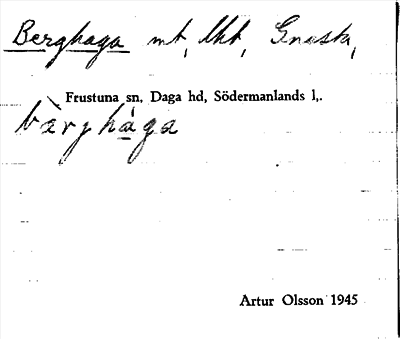 Berghaga mt, lht, Gnesta,
Frustuna sn, Daga hd, Södermanlands l,.
bàrjhága
Artur Olsson 1945